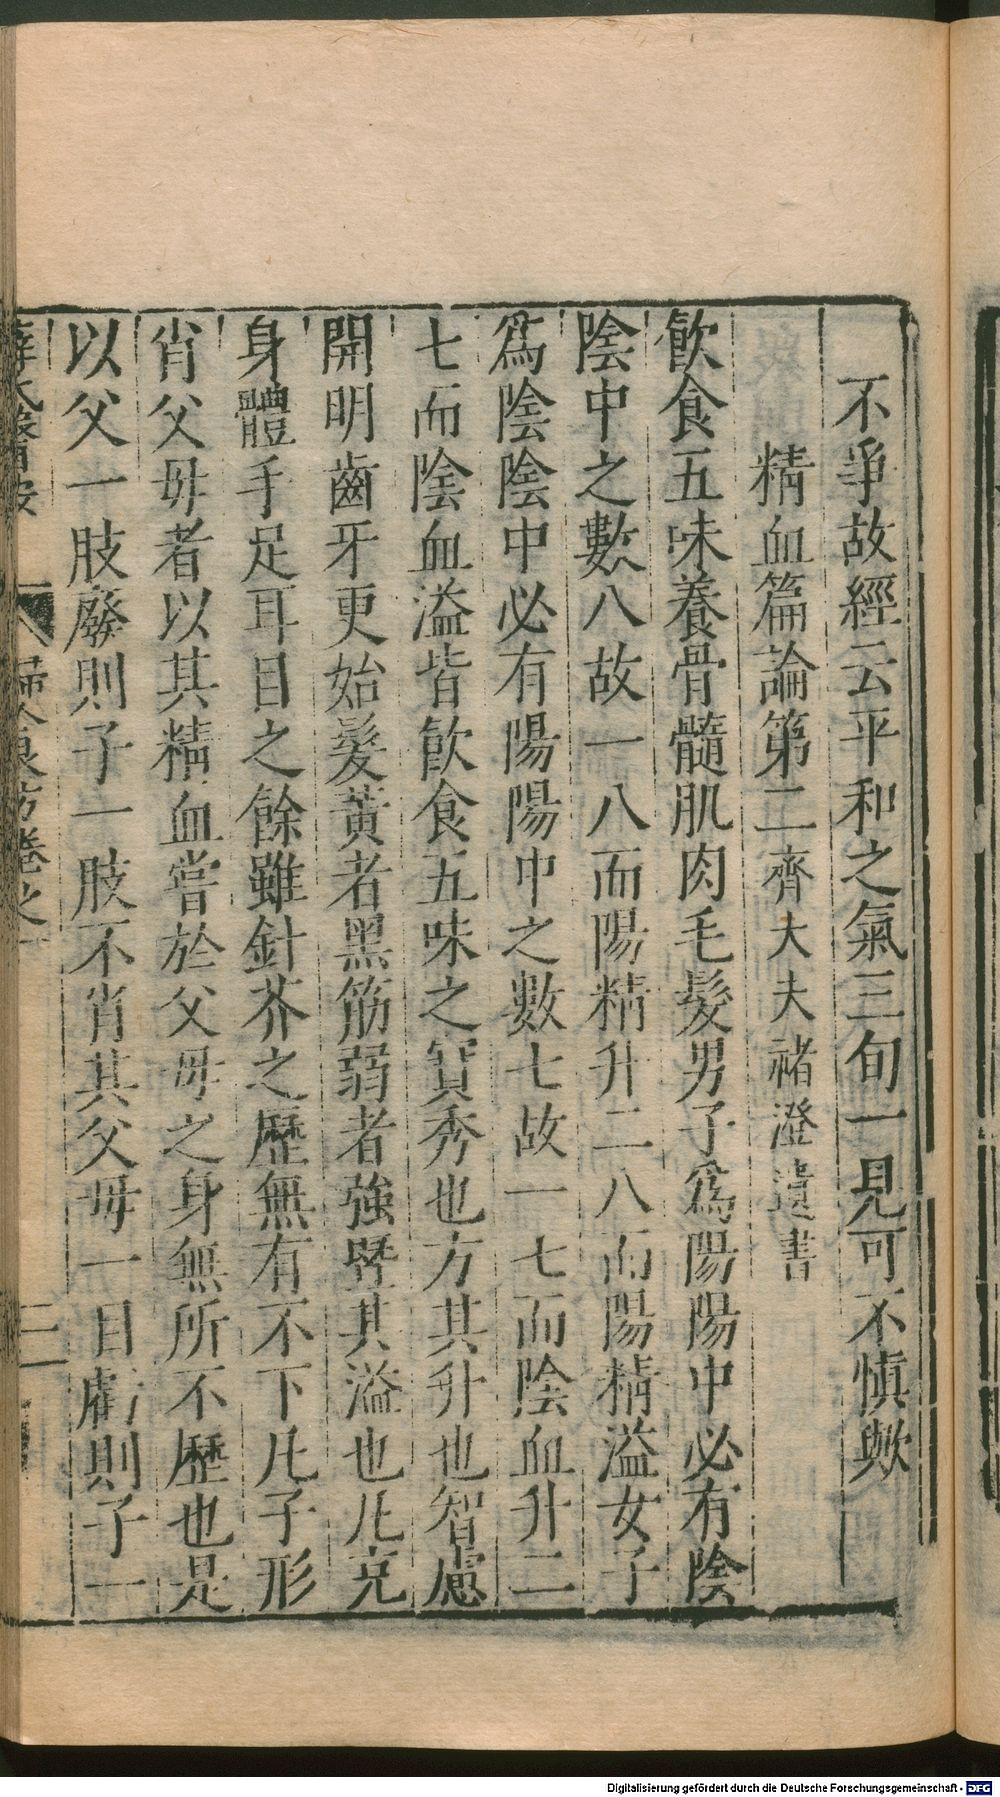 不爭故經云平和之氣三旬一見可不慎歟
精血篇論第二齊大夫褚澄遺書
飲食五味養骨髓肌肉毛髮男子爲陽陽中必有陰
陰中之數八故一八而陽精升二八而陽精溢女子
爲陰陰中必有陽陽中之數七故一七而陰血升二
七而陰血溢皆飲食五味之實秀也方其升也智慮
開明齒牙更始髮黃者黑筋弱者強曁其溢也凡充
身體手足耳目之餘雖針芥之歷無有不下凡子形
肖父母者以其精血嘗於父母之身無所不歷也是
以父一肢廢則子一肢不肖其父母一目虧則子一
婦人良方卷之一
三
Digitalisierung gefördert durch die Deutsche Forschungsgemeinschaft - DFG